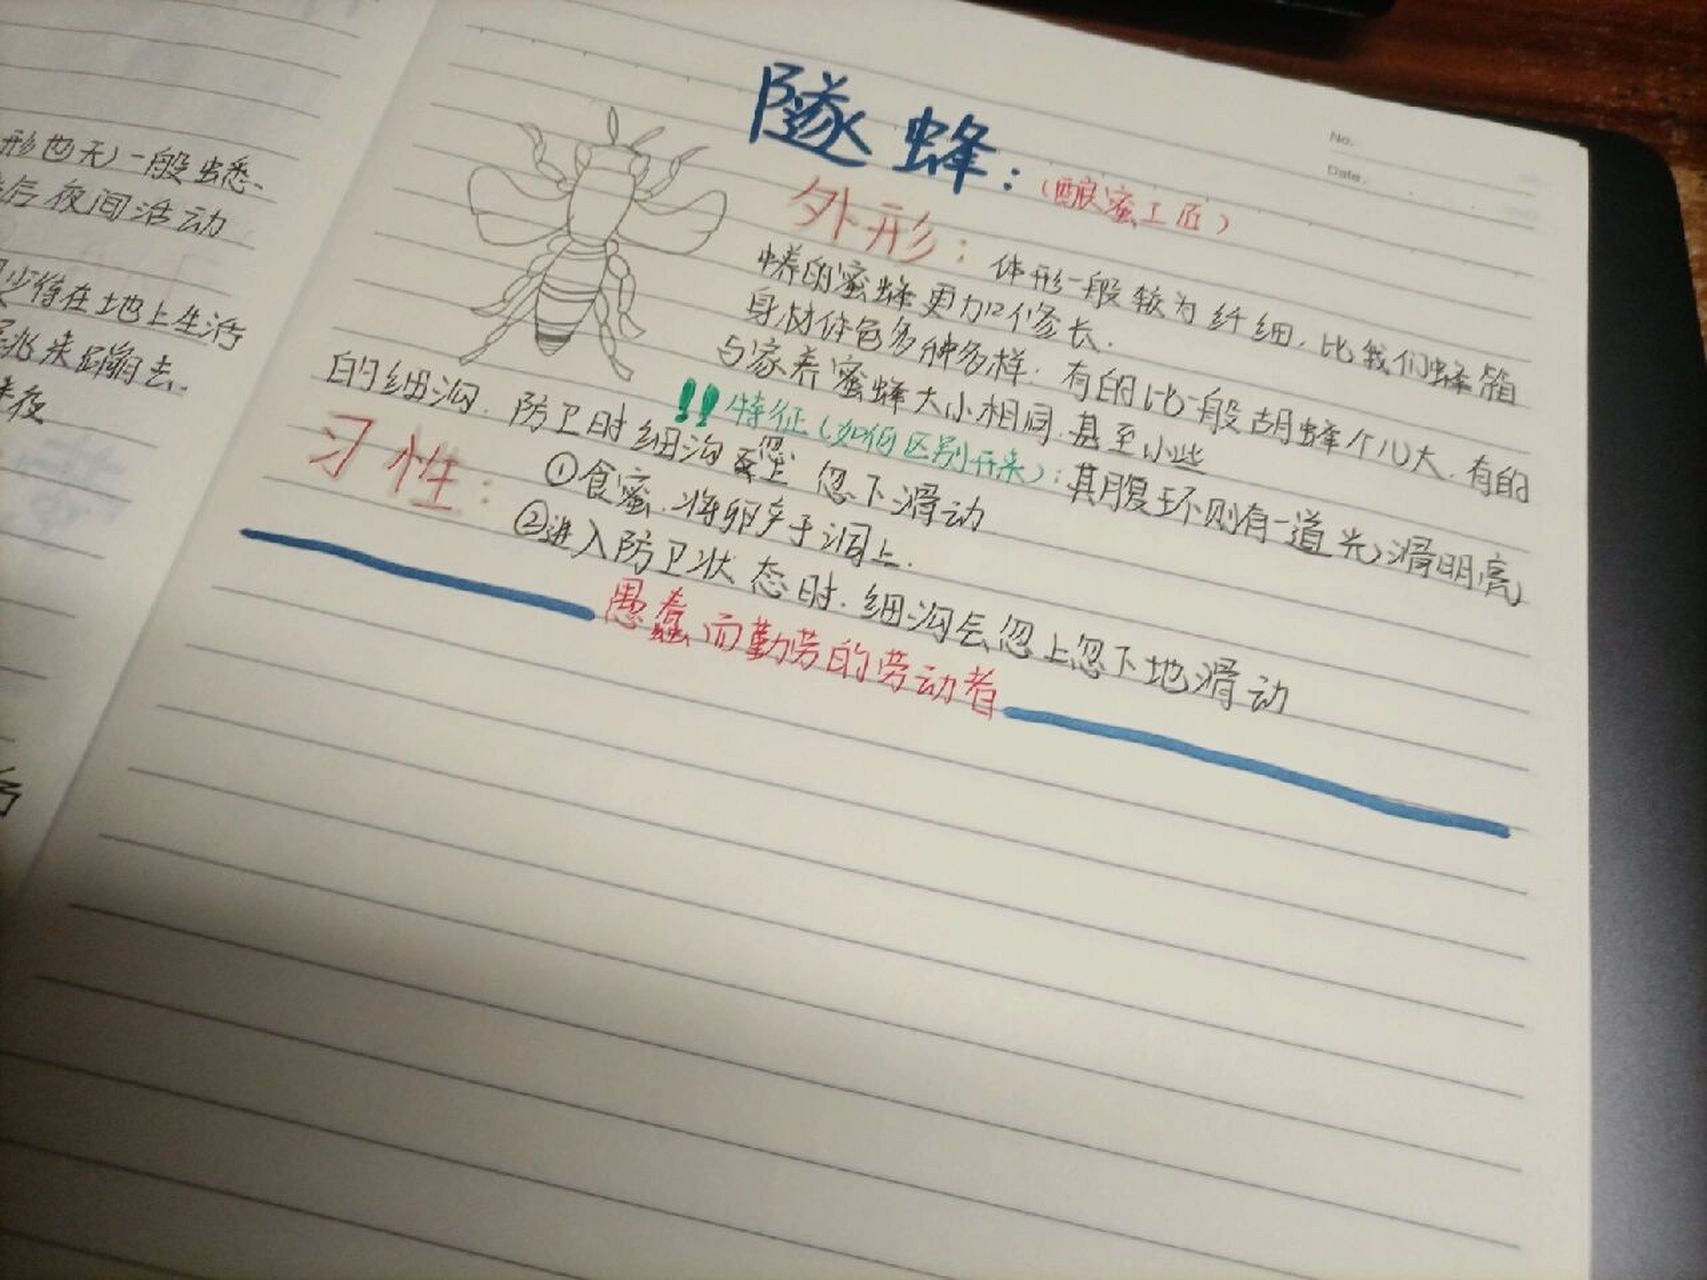 形也无)一般蟋
后夜间活动
少待在地上生活
跳来蹦去.
夜
No.
Date.
隧蜂：(酿蜜工匠)
外形：体形一般较为纤细.比我们蜂箱
养的蜜蜂更加修长.
身材体色多种多样.有的比一般胡蜂个儿大.有的
与家养蜜蜂大小相同.甚至小些
!!特征(如何区别开来):其腹环则有一道光滑明亮
的细沟.防卫时细沟忽上忽下滑动
习性：①食蜜.将卵产于洞上.
②进入防卫状态时.细沟会忽上忽下地滑动
愚蠢而勤劳的劳动者